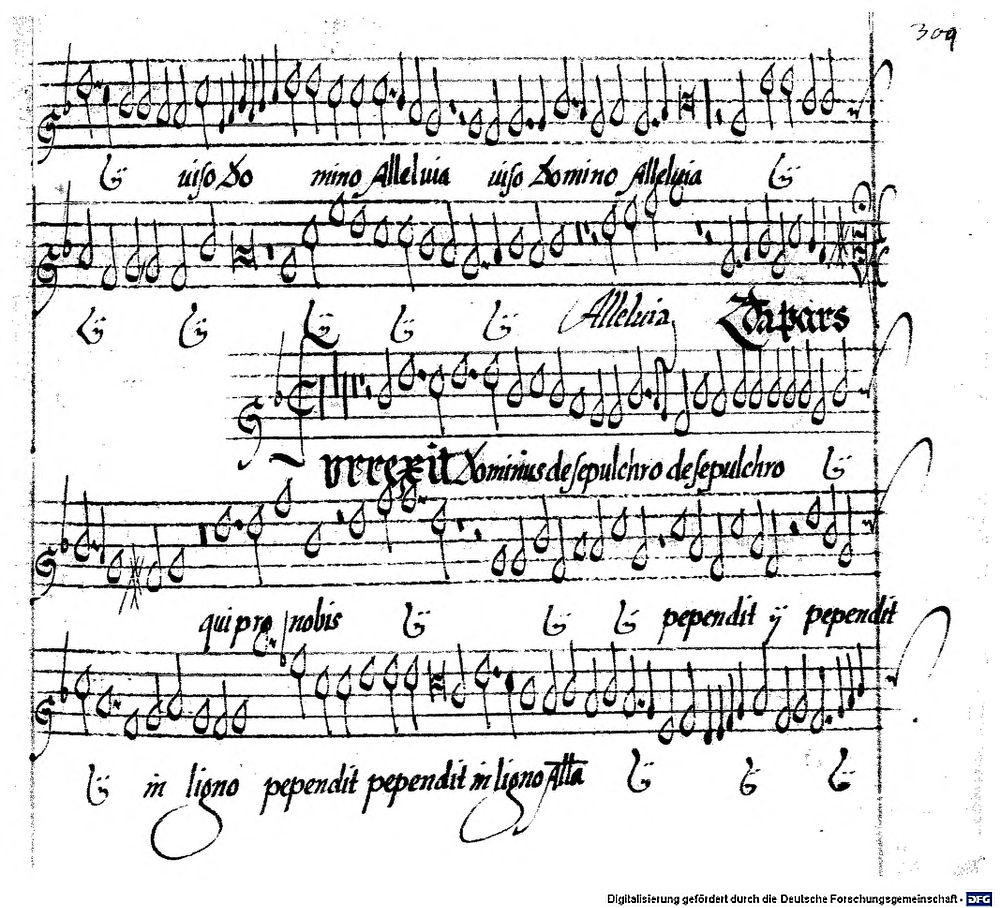 309
ij uiso Do mino Alleluia uiso Domino Alleluia ij
ij ij ij ij ij Alleluia 2a pars
Surrexit Dominus de sepulchro de sepulchro ij
qui pro nobis ij ij ij pependit ij pependit
ij in ligno pependit pependit in ligno Alla ij ij ij
Digitalisierung gefördert durch die Deutsche Forschungsgemeinschaft - DFG